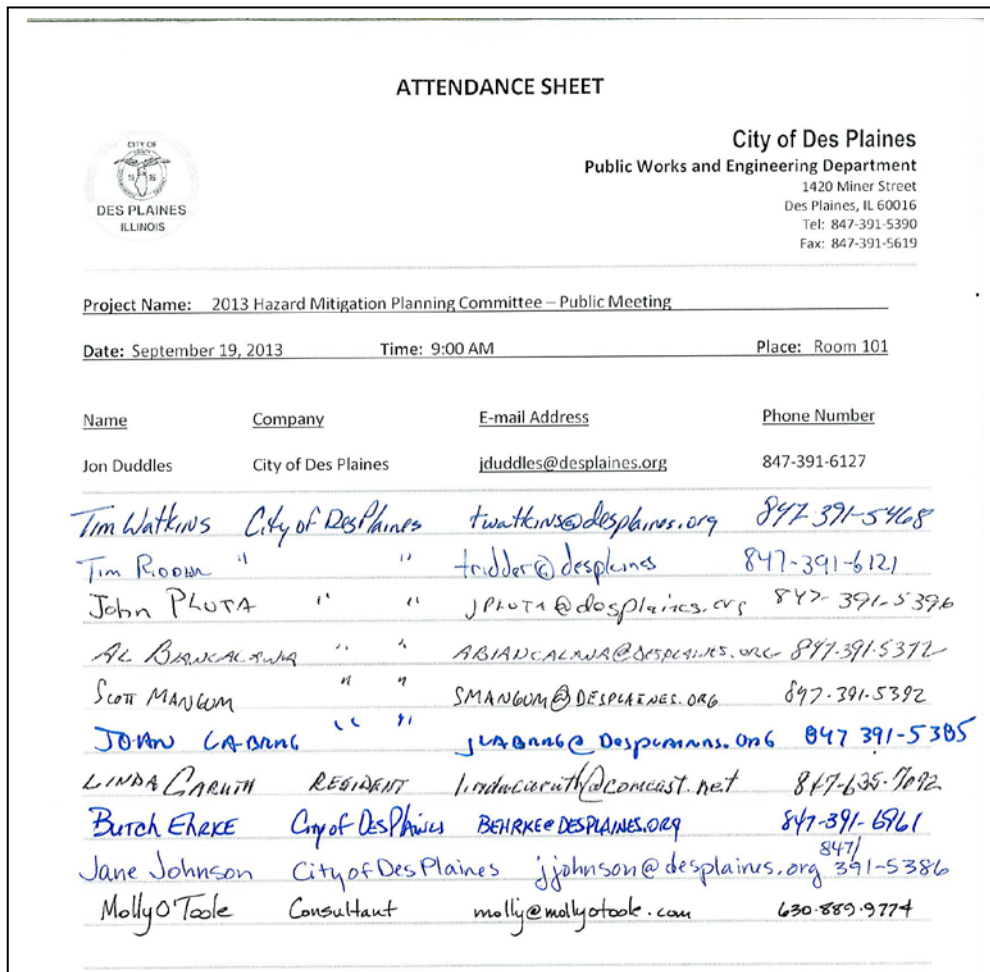 ATTENDANCE SHEET
CITY OF
DES PLAINES
ILLINOIS
City of Des Plaines
Public Works and Engineering Department
1420 Miner Street
Des Plaines, IL 60016
Tel: 847-391-5390
Fax: 847-391-5619
Project Name: 2013 Hazard Mitigation Planning Committee – Public Meeting
Date: September 19, 2013 Time: 9:00 AM Place: Room 101
Name Company E-mail Address Phone Number
Jon Duddles City of Des Plaines jduddles@desplaines.org 847-391-6127
Tim Watkins City of Des Plaines twatkins@desplaines.org 847-391-5468
Tim Ridder " " tridder@desplaines 847-391-6121
John PLUTA " " JPLUTA@desplaines.org 847-391-5396
AL BIANCALANA " " ABIANCALANA@DESPLAINES.ORG 847.391.5372
SCOTT MANGUM " " SMANGUM@DESPLAINES.ORG 847.391.5392
" " 847 391-5385
LINDA RESIDENT @comcast.net 847-635-7092
BUTCH EHRKE City of Des Plaines BEHRKE@DESPLAINES.ORG 847-391-6961
Jane Johnson City of Des Plaines jjohnson@desplaines.org 847/391-5386
Molly O'Toole Consultant molly@mollyotoole.com 630.889.9774